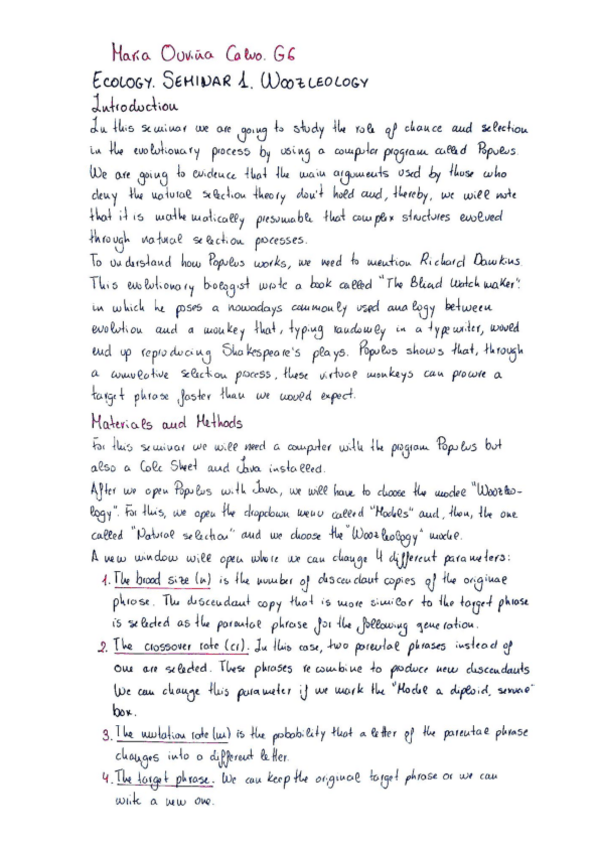 María Ouviña Calvo. G6
ECOLOGY. SEMINAR 1. WOOZLEOLOGY
Introduction
In this seminar we are going to study the role of chance and selection
in the evolutionary process by using a computer program called Populus.
We are going to evidence that the main arguments used by those who
deny the natural selection theory don't hold and, thereby, we will note
that it is mathematically presumable that complex structures evolved
through natural selection processes.
To understand how Populus works, we need to mention Richard Dawkins.
This evolutionary biologist wrote a book called "The Blind Watchmaker":
in which he poses a nowadays commonly used analogy between
evolution and a monkey that, typing randomly in a typewriter, would
end up reproducing Shakespeare's plays. Populus shows that, through
a cumulative selection process, these virtual monkeys can procure a
target phrase faster than we would expect.
Materials and Methods
For this seminar we will need a computer with the program Populus but
also a Calc Sheet and Java installed.
After we open Populus with Java, we will have to choose the model "Woozleo-
logy". For this, we open the dropdown menu called "Models" and, then, the one
called "Natural selection" and we choose the "Woozleology" model.
A new window will open where we can change 4 different parameters:
1. The brood size (n) is the number of descendant copies of the original
phrase. The descendant copy that is more similar to the target phrase
is selected as the parental phrase for the following generation.
2. The crossover rate (cr). In this case, two parental phrases instead of
one are selected. These phrases recombine to produce new descendants
We can change this parameter if we mark the "Model a diploid, sexual"
box.
3. The mutation rate (m) is the pobability that a letter of the parental phrase
changes into a different letter.
4. The target phrase. We can keep the original target phrase or we can
write a new one.